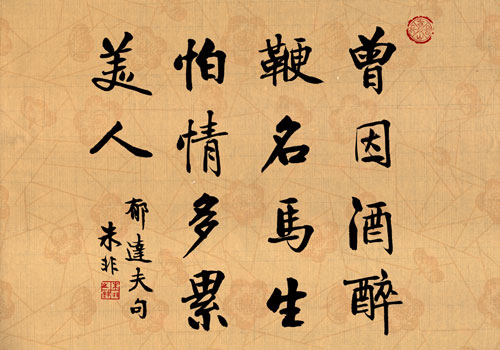 曾因酒醉
鞭名馬生
怕情多累
美人
郁達夫句
朱非